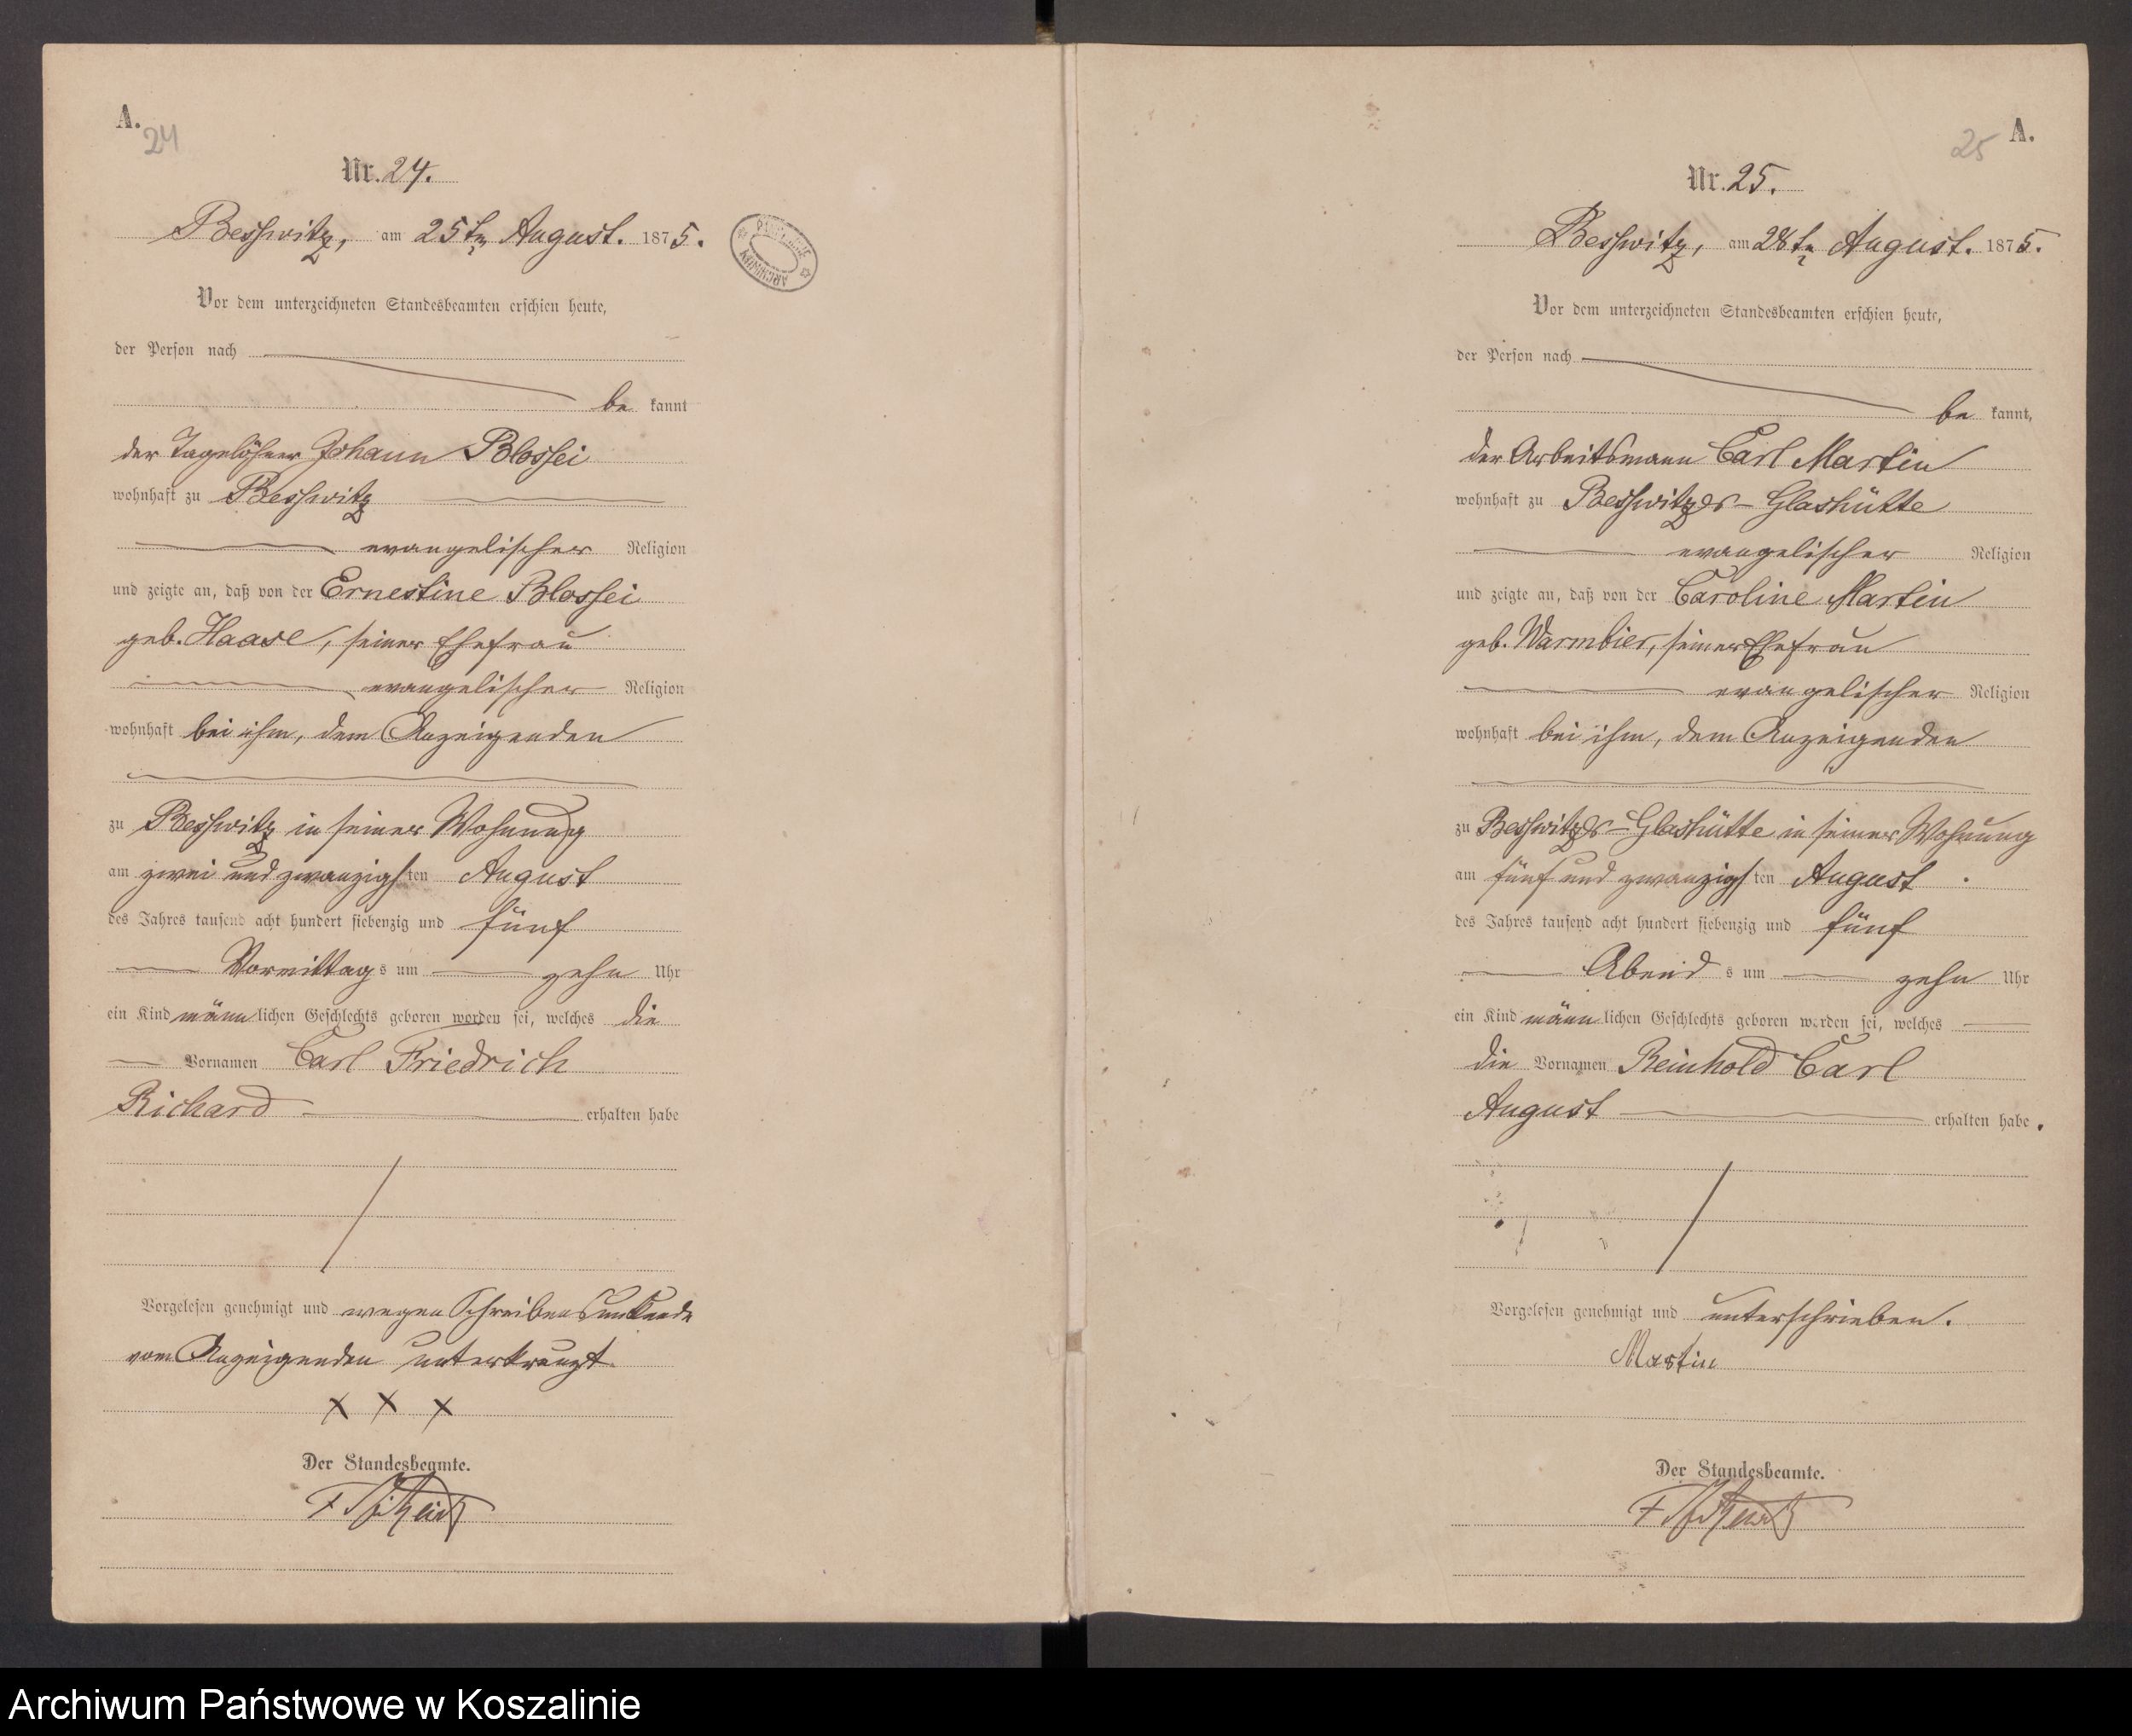 A.
24
Nr. 24.
Besswitz, am 25ten August. 1875.
Vor dem unterzeichneten Standesbeamten erschien heute,
der Person nach
be kannt
der Tagelöhner Johann Blossei
wohnhaft zu Besswitz
evangelischer Religion
und zeigte an, daß von der Ernestine Blossei
geb. Haase, seiner Ehefrau
evangelischer Religion
wohnhaft bei ihm, dem Anzeigenden
zu Besswitz in seiner Wohnung
am zwei und zwanzigsten August
des Jahres tausend acht hundert siebenzig und fünf
Vormittags um zehn Uhr
ein Kind männlichen Geschlechts geboren worden sei, welches die
Vornamen Carl Friedrich
Richard erhalten habe
Vorgelesen genehmigt und wegen Schreibensunkunde
vom Anzeigenden unterkreuzt.
x x x
Der Standesbeamte.
ARCHIWUM
25
A.
Nr. 25.
Besswitz, am 28ten August. 1875.
Vor dem unterzeichneten Standesbeamten erschien heute,
der Person nach
be kannt,
der Arbeitsmann Carl Martin
wohnhaft zu Besswitzer-Glashütte
evangelischer Religion
und zeigte an, daß von der Caroline Martin
geb. Warmbier, seiner Ehefrau
evangelischer Religion
wohnhaft bei ihm, dem Anzeigenden
zu Besswitzer-Glashütte in seiner Wohnung
am fünf und zwanzigsten August
des Jahres tausend acht hundert siebenzig und fünf
Abends um zehn Uhr
ein Kind männlichen Geschlechts geboren worden sei, welches
die Vornamen Reinhold Carl
August erhalten habe.
Vorgelesen genehmigt und unterschrieben.
Martin
Der Standesbeamte.
Archiwum Państwowe w Koszalinie